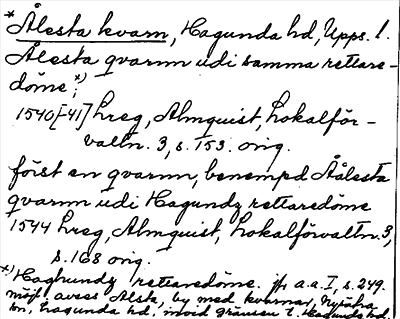 *Ålesta kvarn, Hagunda hd, Upps. l.
Ålesta qvarnn udi samma rettare-
döme;*)
1540[-41] hreg, Almquist, Lokalför-
valtn. 3, s. 153. orig.
först en qvarnn, benempd Åålesta
qvarnn udi Hagundz rettaredöme
1544 hreg, Almquist, Lokalförvaltn. 3,
s. 168 orig.
*) Haghundz rettaredöme. jfr a.a. I, s. 249.
möjl. avses Alsta, by med kvarnar, Nysätra
sn, Lagunda hd, invid gränsen t. Hagunda hd.